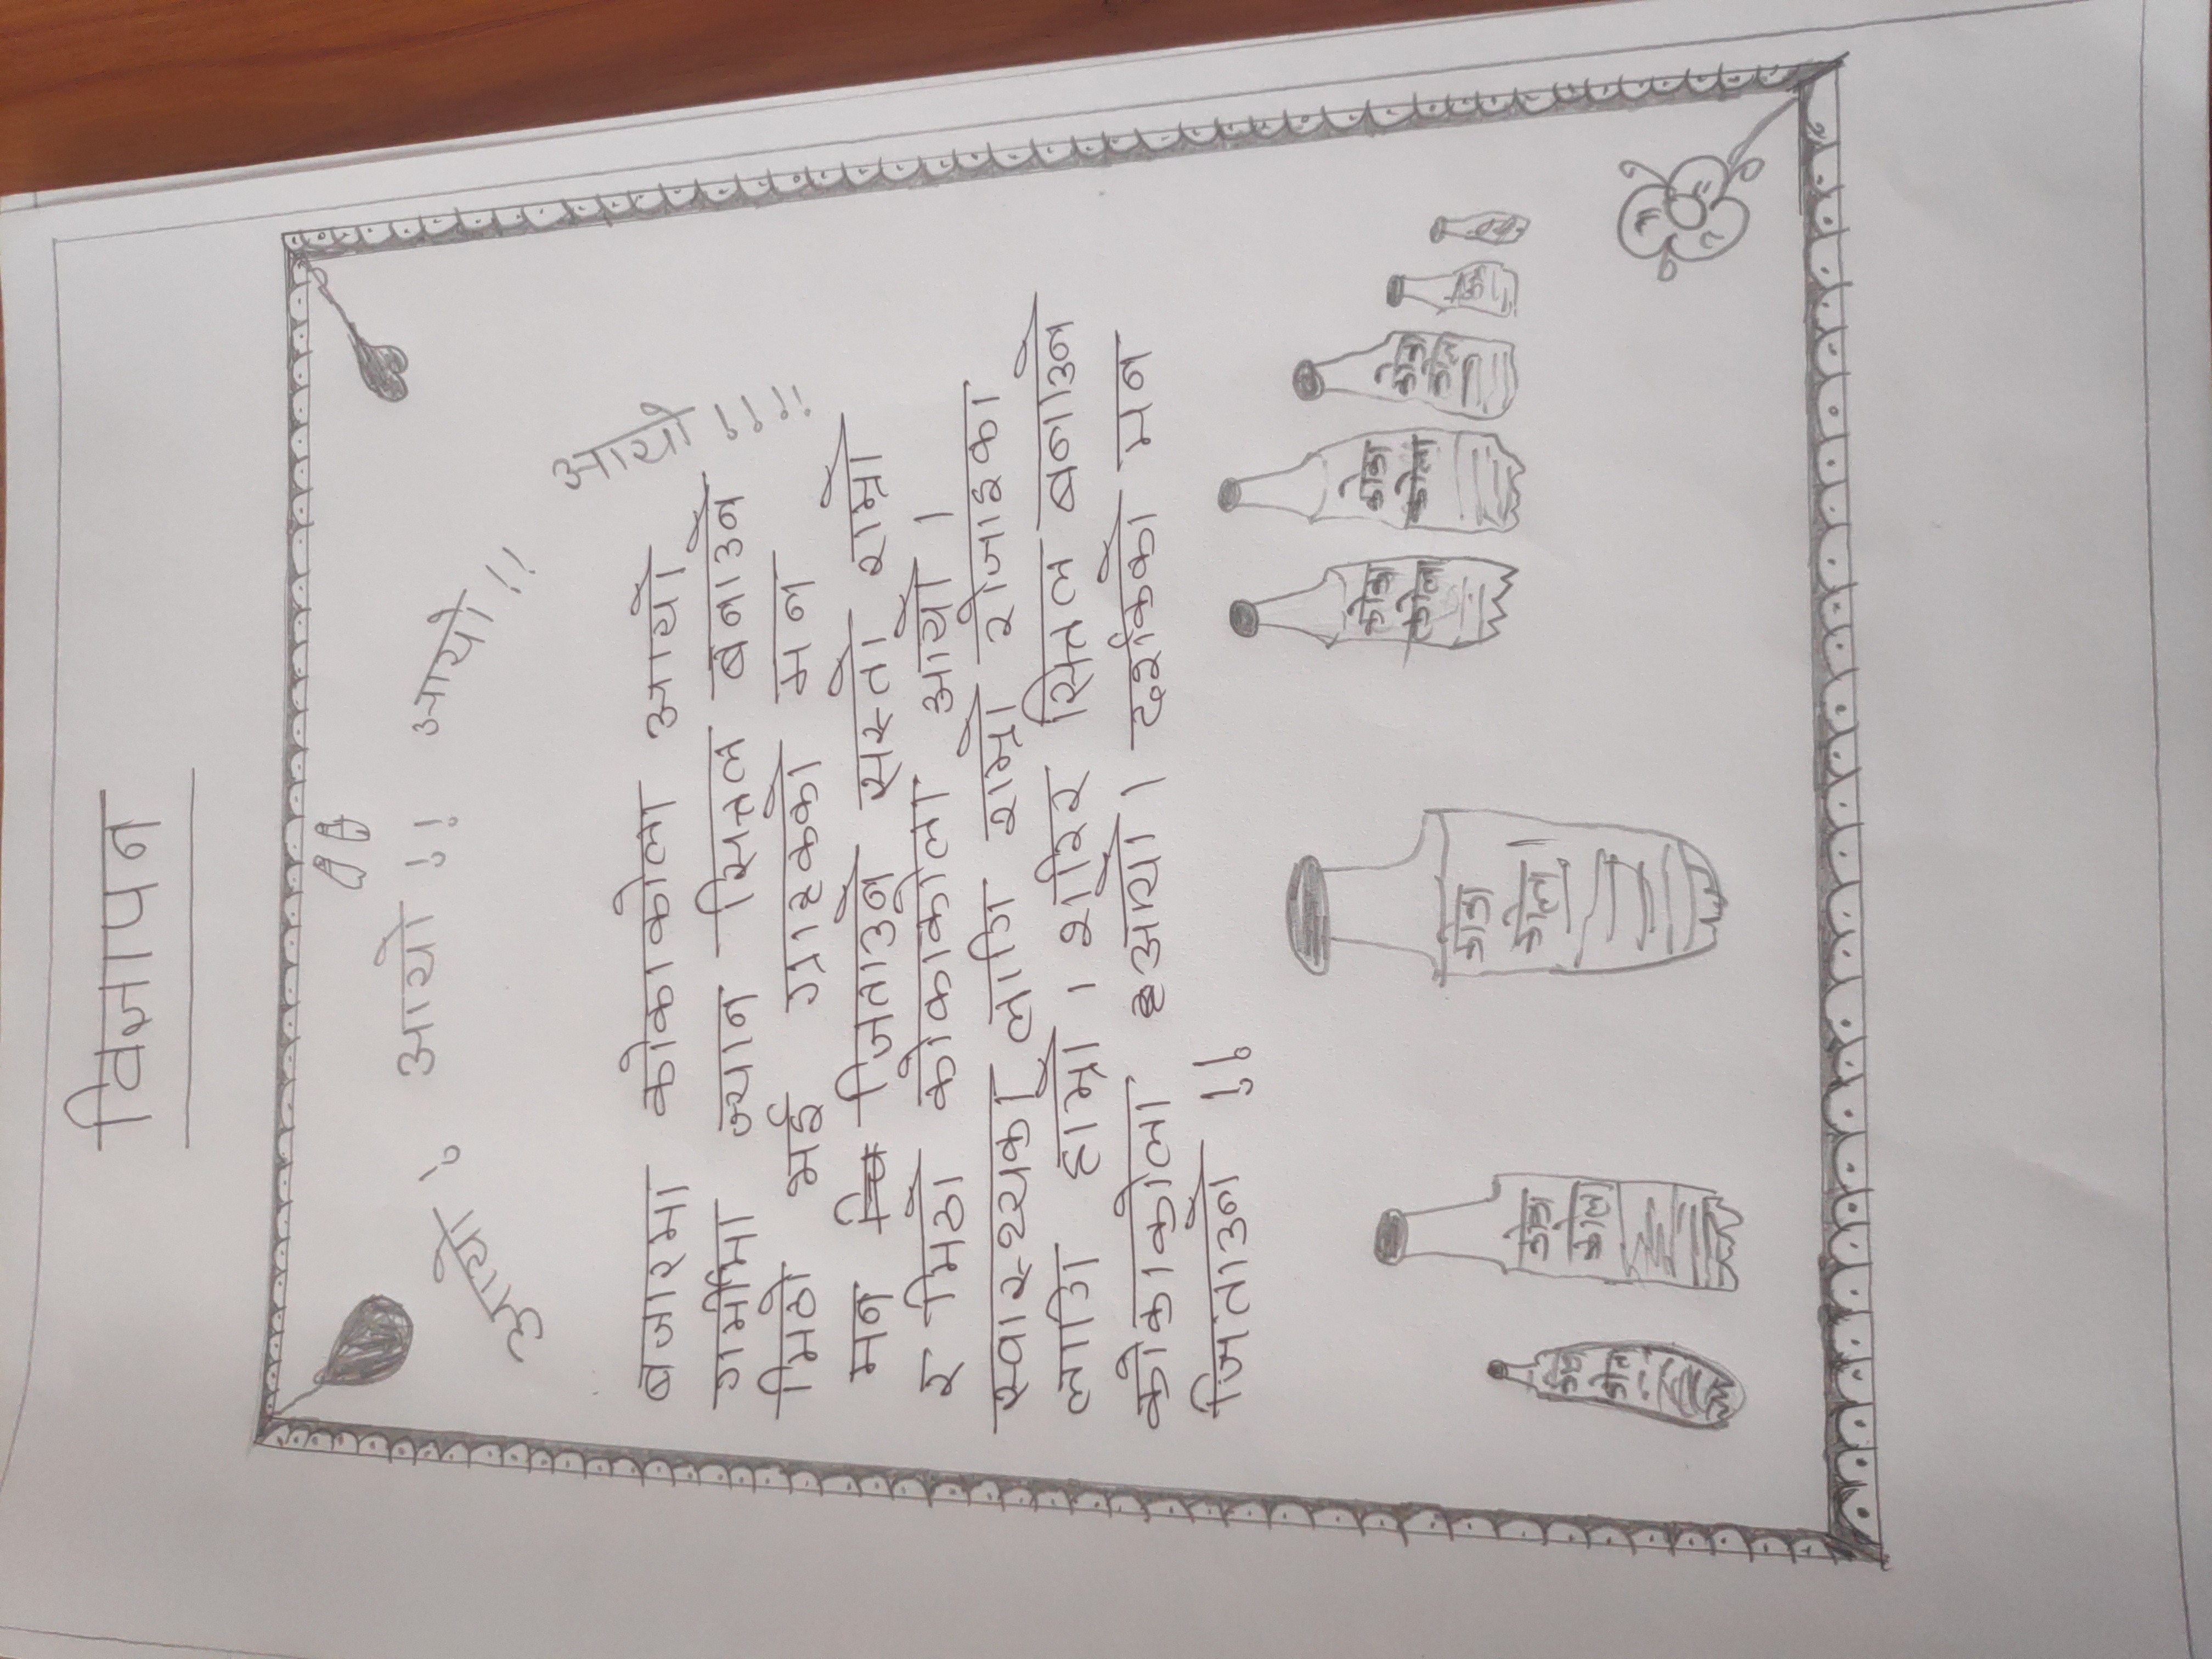 विज्ञापन
आयो ! आयो !! आयो !! आयो !!!
बजारमा कोकाकोला आयो
गर्मीमा ज्यान सित्तल बनाउने
मिठो भई ग्राहकको मन
मन जिताउने सस्तो राम्रो
र मिठो कोकाकोला आयो ।
स्वास्थ्यका लागि राम्रो रोजाइका
लागि हाम्रो । शरिर सित्तल बनाउने
कोकाकोला आयो । दर्शकको मन
जिताउने !!
कोका
कोला
कोका
कोला
कोका
कोला
कोका
कोला
कोका
कोला
कोका
कोला